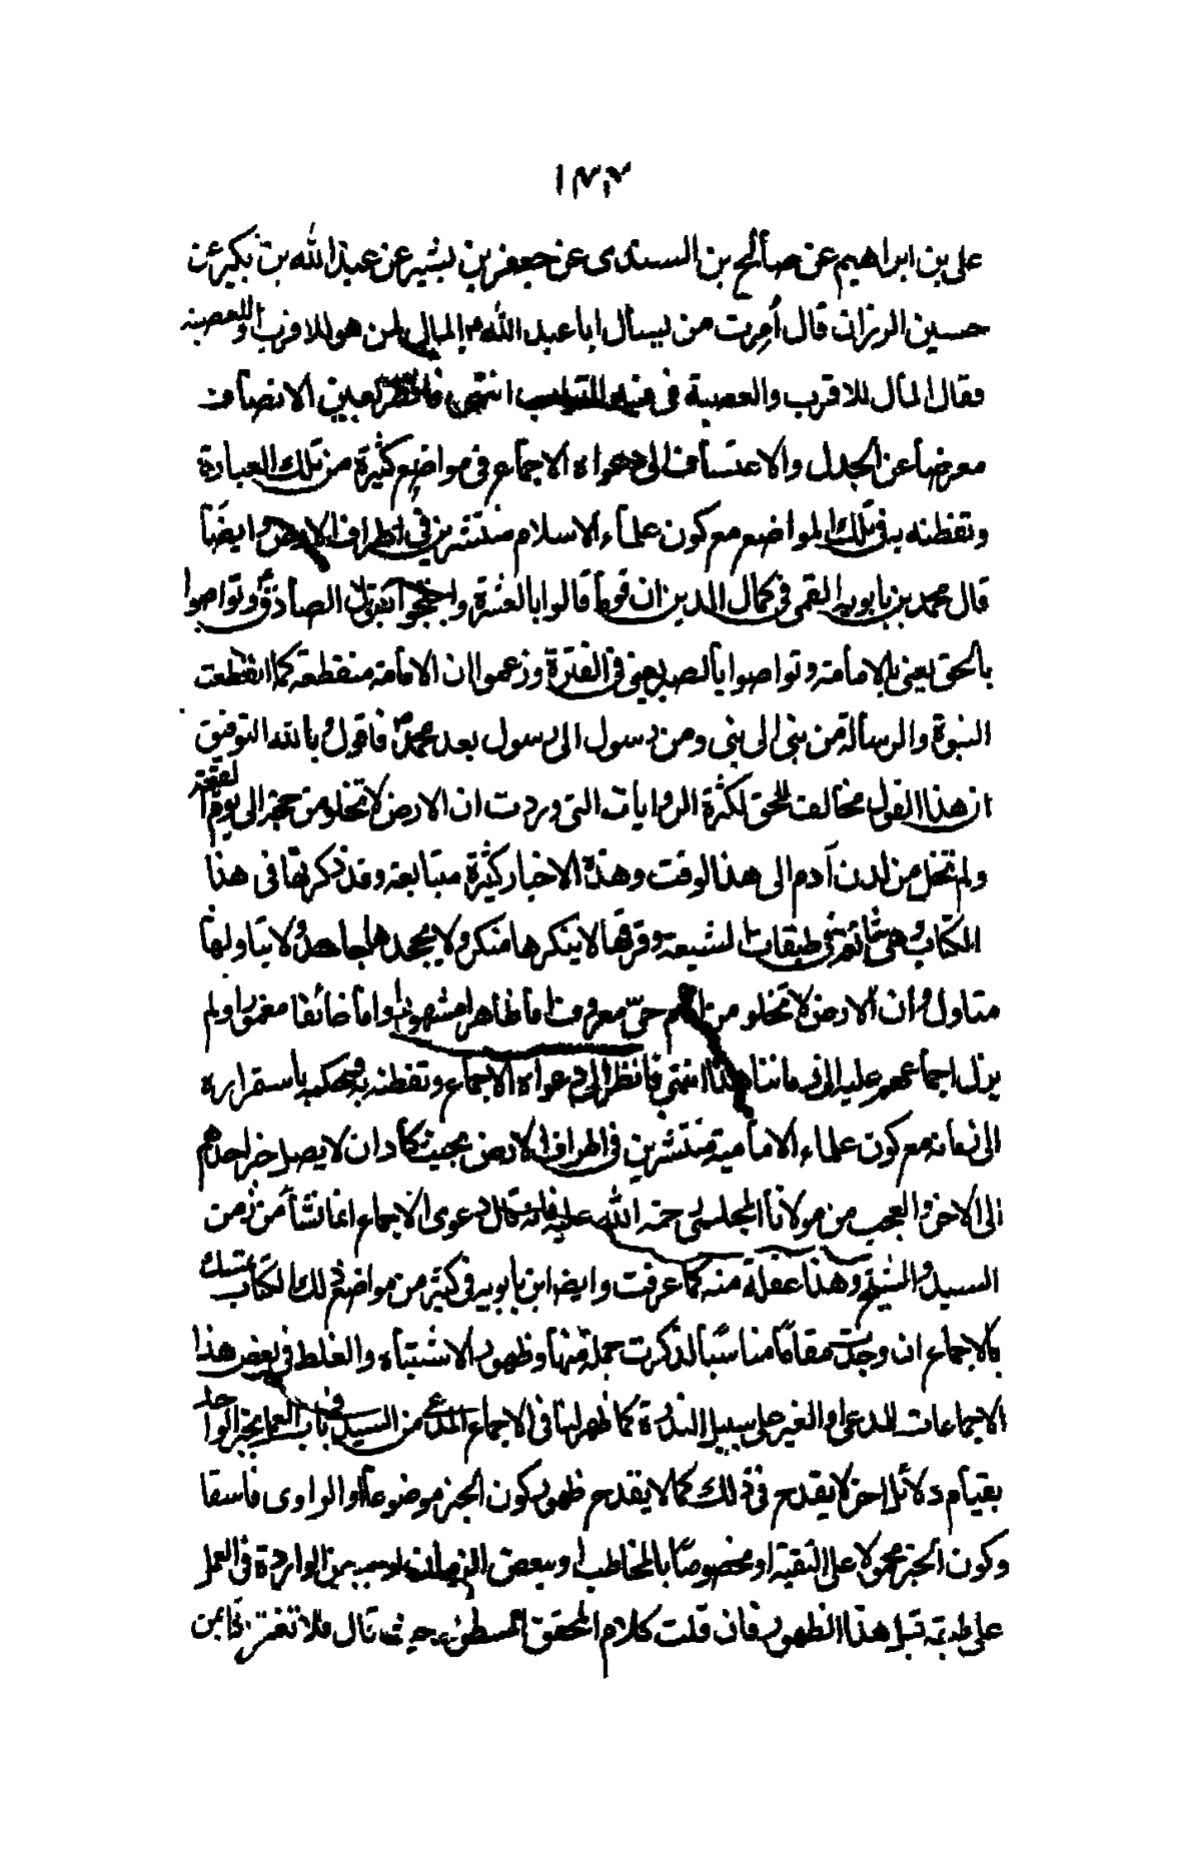 ١٧٧
على بن ابراهيم عن صالح بن السندى عن جعفر بن بشير عن عبد الله بن بكير عن
حسين الرزاز قال أمرت من يسأل ابا عبد الله ع المال لمن هو للاقرب او للعصبة
فقال المال للاقرب والعصبة فى فيه التراب انتهى فانظر بعين الانصاف
معرضا عن الجدل والاعتساف الى دعواه الاجماع فى مواضع كثيرة من تلك العبارة
وتفطنه به فى تلك المواضع مع كون علماء الاسلام منتشرين فى اطراف الارض وايضا
قال محمد بن بابويه القمى فى كمال الدين ان قوما قالوا بالفترة واحتجوا بقول الصادق وتواصوا
بالحق يعنى بالامامة وتواصوا بالصبر يعنى فى الفترة وزعموا ان الامامة منقطعة كما انقطعت
النبوة والرسالة من نبى الى نبى ومن رسول الى رسول بعد محمد ص فاقول وبالله التوفيق
ان هذا القول مخالف للحق لكثرة الروايات التى وردت ان الارض لا تخلو من حجة الى يوم القيمة
ولم تخل من لدن آدم الى هذا الوقت وهذه الاخبار كثيرة متتابعة وقد ذكرتها فى هذا
الكتاب وهى شائعة فى طبقات الشيعة وفرقها لا ينكرها منكر ولا يجحدها جاحد ولا يتاولها
متاول وان الارض لا تخلو من امام حى معروف اما ظاهر مشهور واما خائف مغمور ولم
يزل اجماعهم عليه الى زماننا هذا انتهى فانظر الى دعواه الاجماع وتفطنه به وحكمه باستقراره
الى زمانه مع كون علماء الامامية منتشرين فى اطراف الارض بحيث كاد ان لا يصل خبر احدهم
الى الاخر والعجب من مولانا المجلسى رحمة الله عليه فانه قال دعوى الاجماع انما نشأ من زمن
السيد والشيخ وهذا غفلة منه كما عرفت وايضا ابن بابويه فى كثير من مواضع ذلك الكتاب تمسك
بالاجماع ان وجدت مقاما مناسبا لذكرت جملة منها وظهور الاشتباه والغلط فى بعض هذا
الاجماعات للمدعى او الغير على سبيل الندرة كما ظهر لنا فى الاجماع المدعى من السيد فى باب العمل بخبر الواحد
بقيام دلائل اخر لا يقدح فى ذلك كما لا يقدح ظهور كون الخبر موضوعا والراوى فاسقا
وكون الخبر محمولا على التقية او مخصوصا بالمخاطب او ببعض الازمان الواردة فى العمل
على قبل هذا الظهور فان قلت كلام المحقق حيث قال فلا تغتر اذا بمن